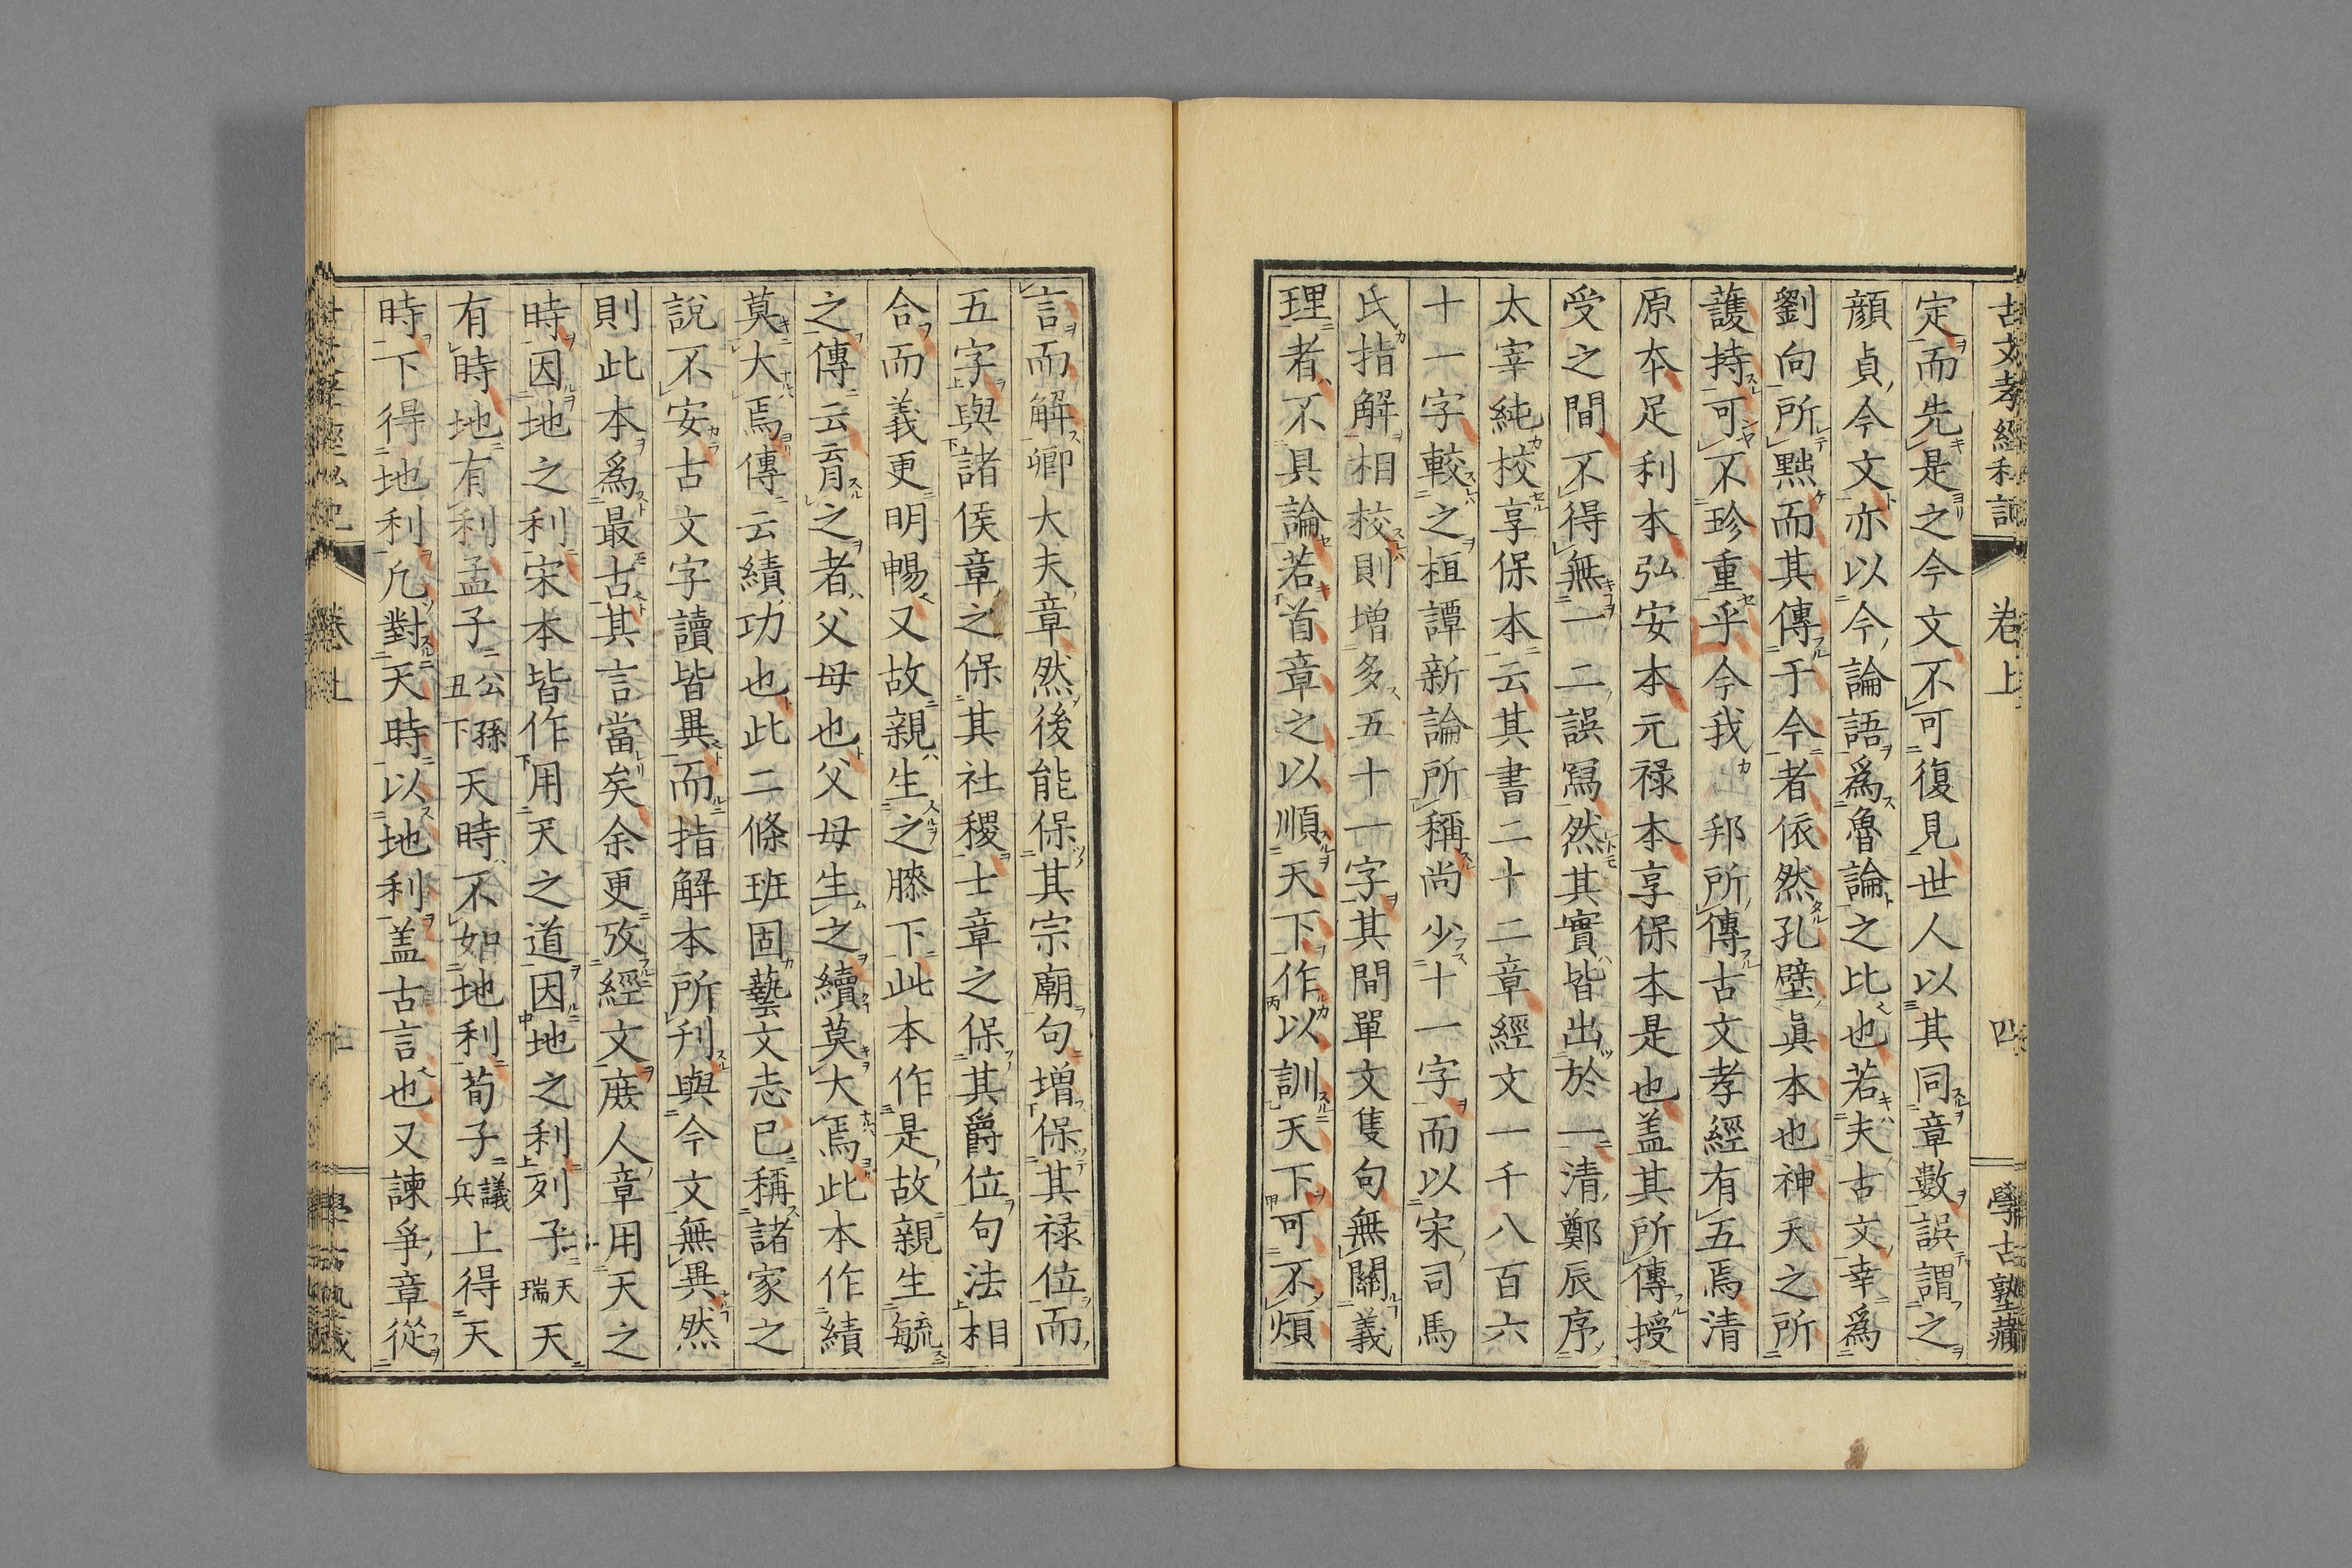 古文孝經私記 卷上 四 學古塾藏
定而先是之今文不可復見世人以其同章數誤謂之
顔貞今文亦以今論語爲魯論之比也若夫古文幸爲
劉向所黜而其傳于今者依然孔壁眞本也神天之所
護持可不珍重乎今我 邦所傳古文孝經有五焉清
原本足利本弘安本元禄本享保本是也盖其所傳授
受之間不得無一二誤寫然其實皆出於一清鄭辰序
太宰純校享保本云其書二十二章經文一千八百六
十一字較之桓譚新論所稱尚少十一字而以宋司馬
氏指解相校則增多五十一字其間單文隻句無關義
理者不具論若首章之以順天下作以訓天下可不煩
言而解卿大夫章然後能保其宗廟句增保其禄位而
五字與諸侯章之保其社稷士章之保其爵位句法相
合而義更明暢又故親生之膝下此本作是故親生毓
之傳云育之者父母也父母生之續莫大焉此本作績
莫大焉傳云績功也此二條班固藝文志已稱諸家之
說不安古文字讀皆異而指解本所刋與今文無異然
則此本爲最古其言當矣余更攷經文庻人章用天之
時因地之利宋本皆作用天之道因地之利列子天瑞天
有時地有利孟子公孫丑下天時不如地利荀子議兵上得天
時下得地利凢對天時以地利盖古言也又諫爭章從
卷上